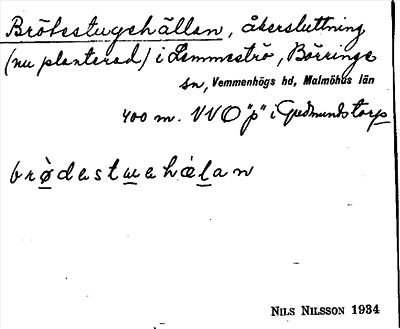 Brötestugehällan, åkersluttning
(nu planterad) i Lemmeströ, Börringe
sn, Vemmenhögs hd, Malmöhus län
400 m. VVO "p" i Gudmundstorp
brø̀dastuahælan
NILS NILSSON 1934